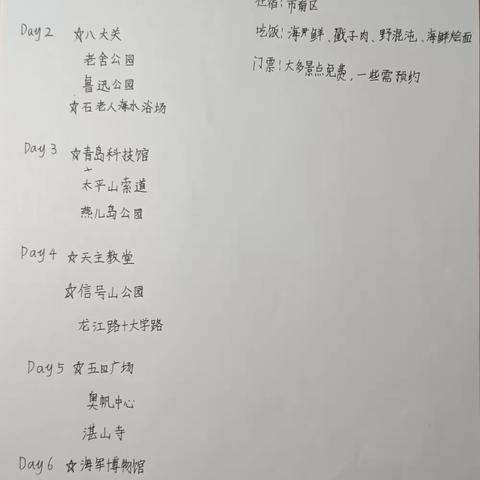 Day2 ☆八大关
老舍公园
鲁迅公园
☆石老人海水浴场
Day 3 ☆青岛科技馆
太平山索道
燕儿岛公园
Day4 ☆天主教堂
☆信号山公园
龙江路+大学路
Day5 ☆五四广场
奥帆中心
湛山寺
Day6 ☆海军博物馆
住宿:市南区
吃饭:海鲜、戳子肉、野馄饨、海鲜烩面
门票:大多景点免费,一些需预约